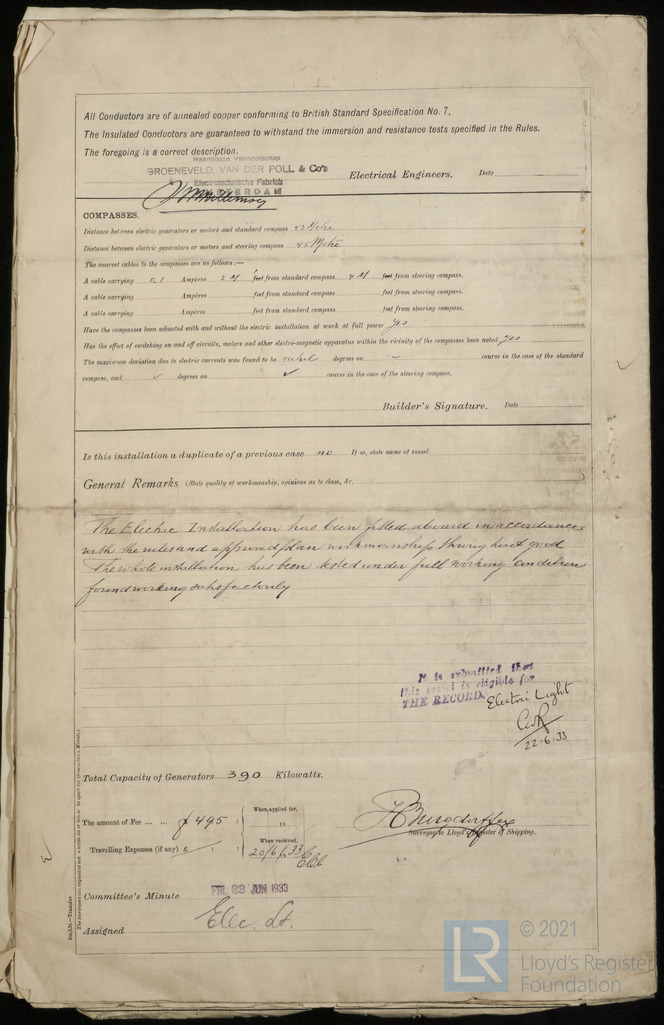 All Conductors are of annealed copper conforming to British Standard Specification No. 7.
The Insulated Conductors are guaranteed to withstand the immersion and resistance tests specified in the Rules.
The foregoing is a correct description.
Naamlooze Vennootschap
GROENEVELD, VAN DER POLL & Co's
Electrotechnische Fabriek
AMSTERDAM
Electrical Engineers. Date
COMPASSES.
Distance between electric generators or motors and standard compass 43 Metre
Distance between electric generators or motors and steering compass 45 Metre
The nearest cables to the compasses are as follows:—
A cable carrying 0.5 Ampères 2 M feet from standard compass 4 M feet from steering compass.
A cable carrying Ampères feet from standard compass feet from steering compass.
A cable carrying Ampères feet from standard compass feet from steering compass.
Have the compasses been adjusted with and without the electric installation at work at full power yes
Has the effect of switching on and off circuits, motors and other electro-magnetic apparatus within the vicinity of the compasses been noted yes
The maximum deviation due to electric currents was found to be degrees on course in the case of the standard
compass, and degrees on course in the case of the steering compass.
Builder's Signature. Date
Is this installation a duplicate of a previous case no If so, state name of vessel
General Remarks (State quality of workmanship, opinions as to class, &c.
The Electric Installation has been fitted aboard in accordance
with the rules and approved plan workmanship good
The whole installation has been tested under full working condition
found working satisfactorily
It is submitted that
this vessel is eligible for
THE RECORD. Electric Light
22.6.33
Total Capacity of Generators 390 Kilowatts.
The amount of Fee ... ... f 495 : : When applied for,
19
Travelling Expenses (if any) £ : : When received,
20/6/1933
Surveyor to Lloyd's Register of Shipping.
Committee's Minute FRI. 23 JUN 1933
Assigned Elec. Lt.
The Surveyors are requested not to write on or below the space for Committee's Minute.
© 2021
LR Lloyd's Register
Foundation